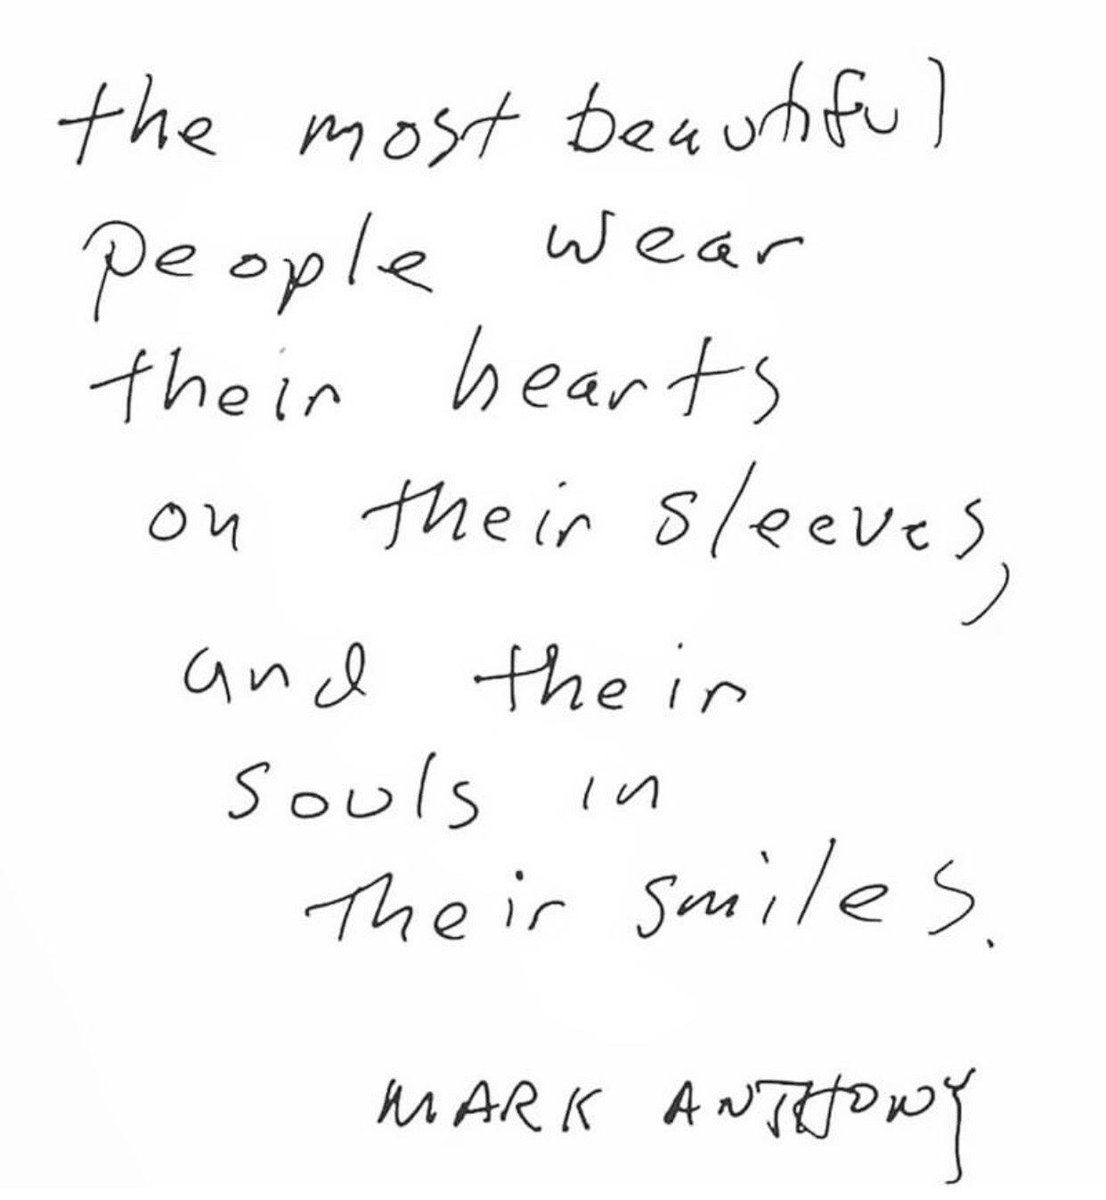 the most beautiful
people wear
their hearts
on their sleeves,
and their
souls in
their smiles.
MARK ANTHONY